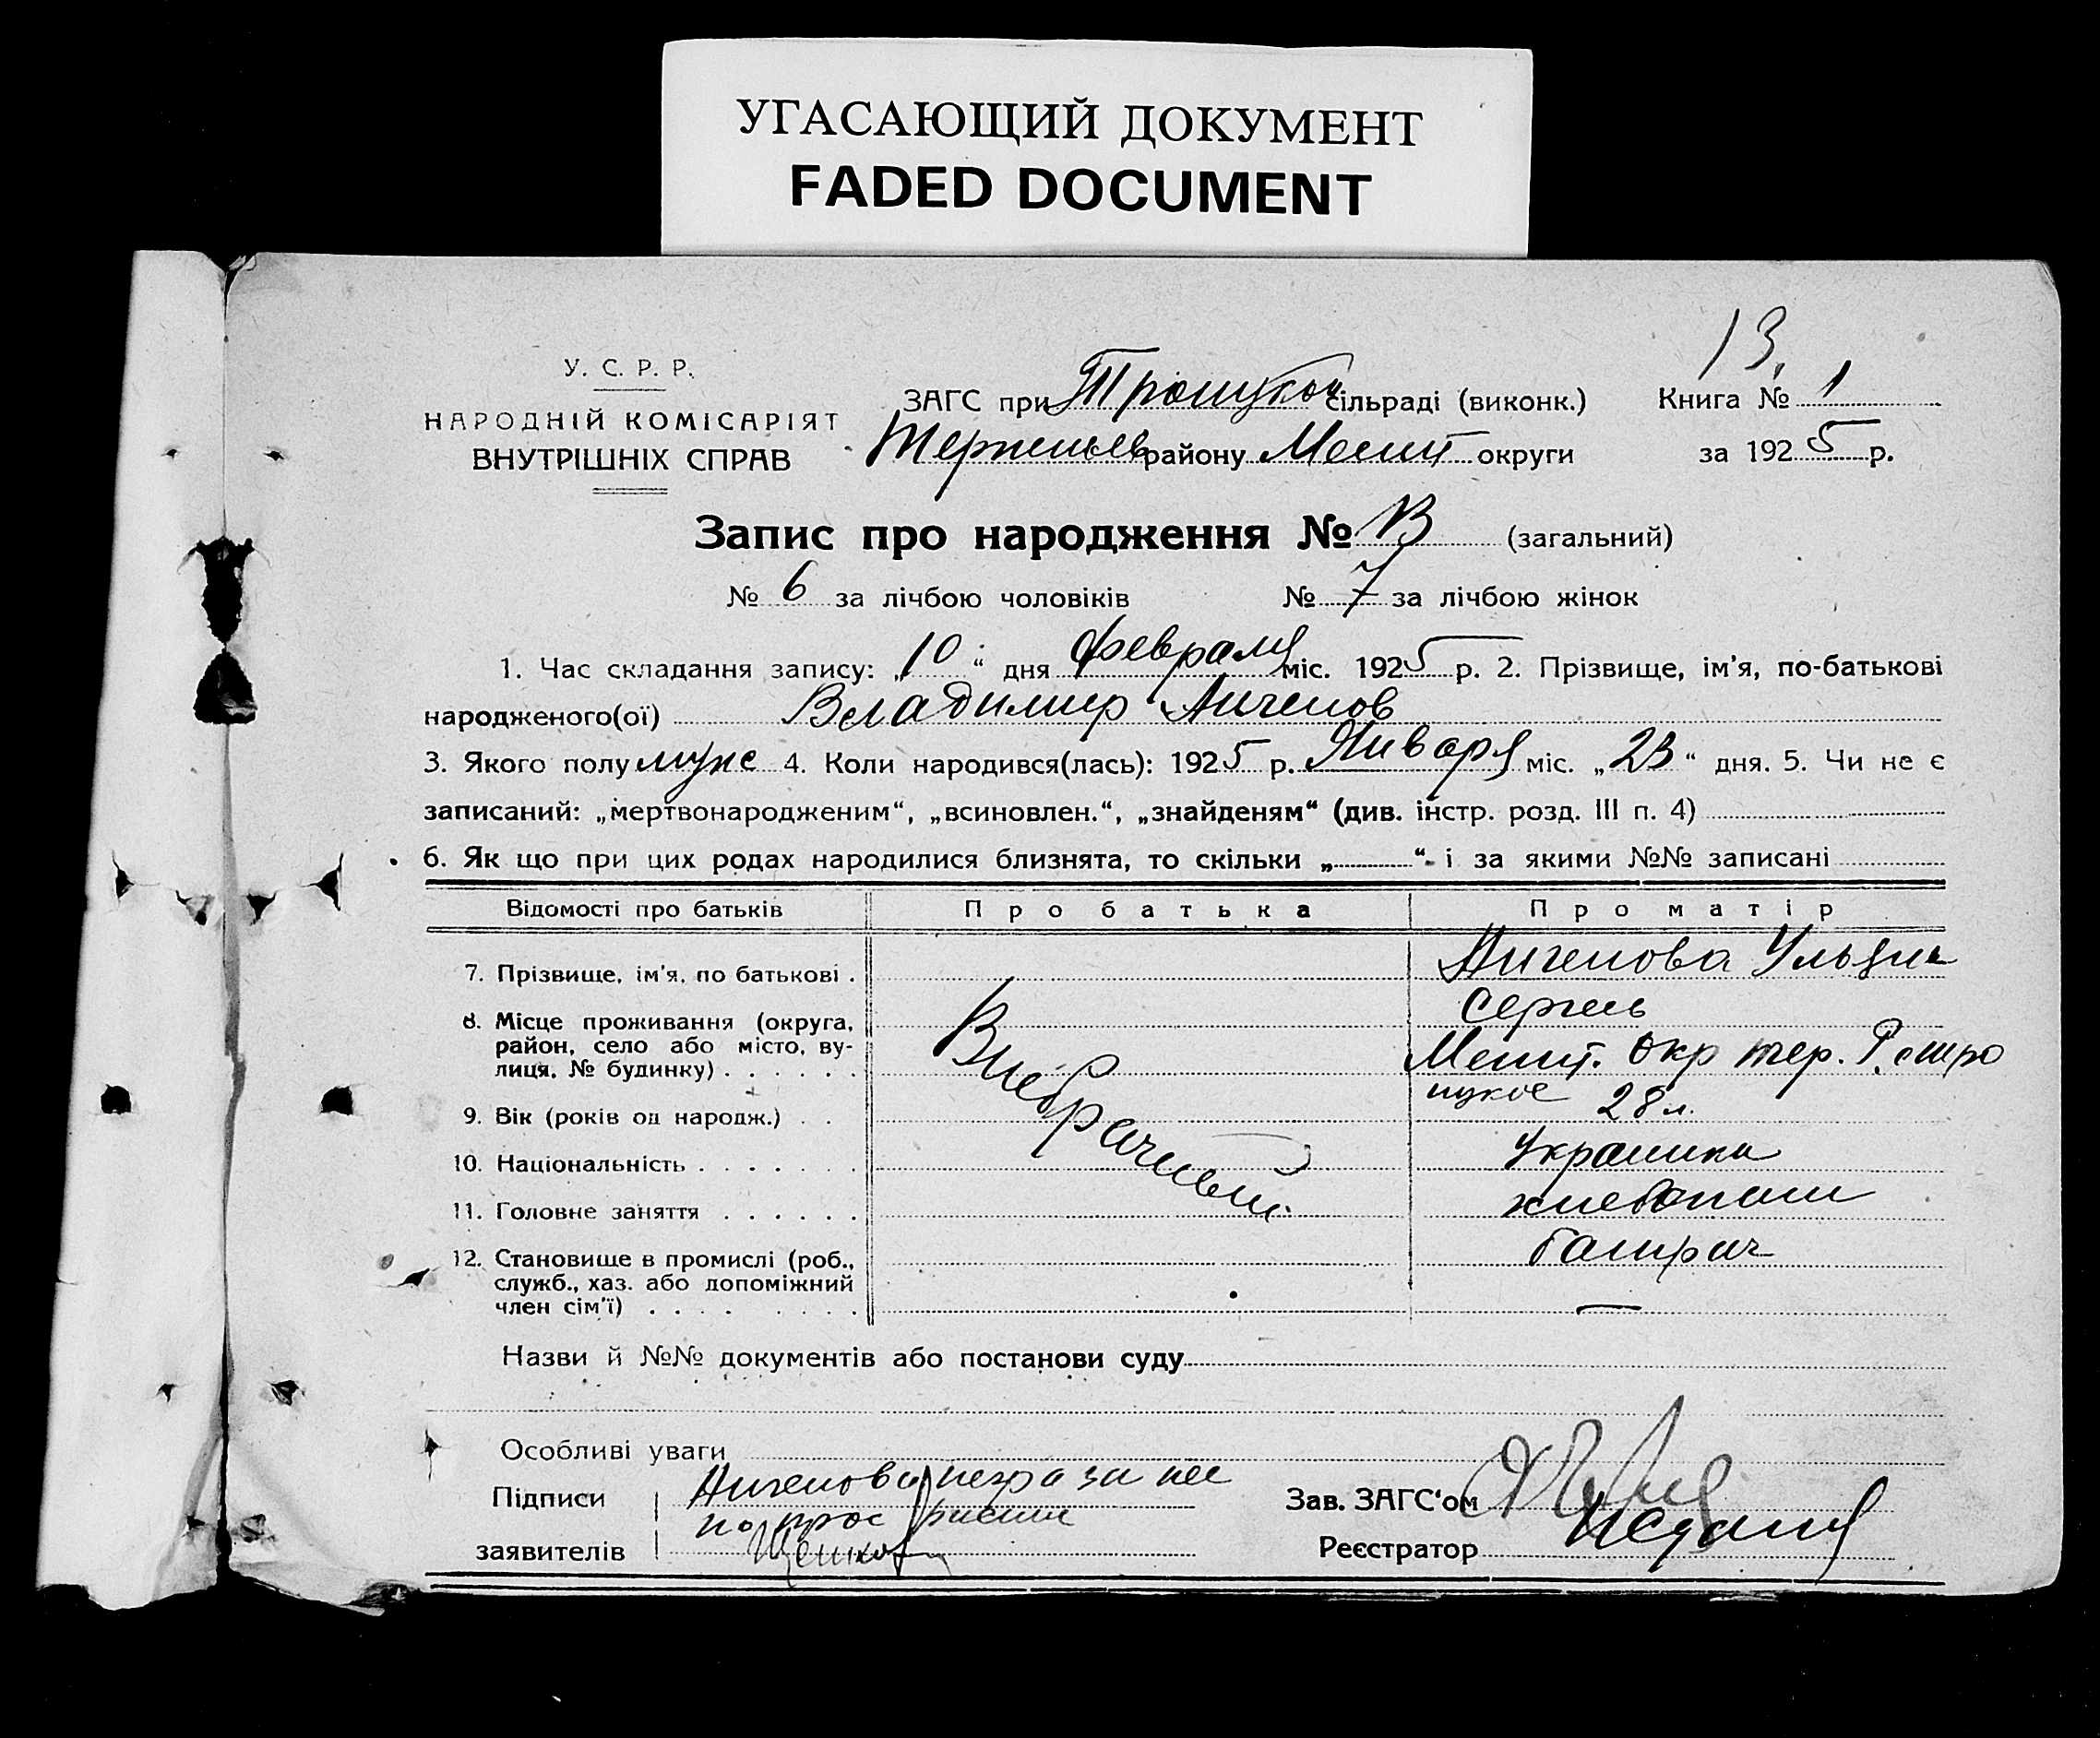 УГАСАЮЩИЙ ДОКУМЕНТ
FADED DOCUMENT
13.
У. С. Р. Р.
НАРОДНІЙ КОМІСАРІЯТ
ВНУТРІШНІХ СПРАВ
ЗАГС при Троицкой сільраді (виконк.) Книга № 1
району Мелит округи за 1925 р.
Запис про народження № 13 (загальний)
№ 6 за лічбою чоловіків № 7 за лічбою жінок
1. Час складання запису: „10“ дня февраля міс. 1925 р. 2. Прізвище, ім'я, по-батькові
народженого(ої) Владимир
3. Якого полу муже 4. Коли народився(лась): 1925 р. Января міс. „23“ дня. 5. Чи не є
записаний: „мертвонародженим“, „всиновлен.“, „знайденям“ (див. інстр. розд. III п. 4)
6. Як що при цих родах народилися близнята, то скільки „ “ і за якими №№ записані
Відомості про батьків Про батька Про матір
7. Прізвище, ім'я, по батькові .
8. Місце проживання (округа,
район, село або місто, ву-
лиця, № будинку) . . . . . .
Мелит. окр тер. Р. с тро
ицкое
Внебрачный
9. Вік (років од народж.) . . 28 л.
10. Національність . . . . . . . Украинка
11. Головне заняття . . . . . . хлебопаш
12. Становище в промислі (роб.,
служб., хаз. або допоміжний
член сім'ї) . . . . . . . .
батрач
Назви й №№ документів або постанови суду
Особливі уваги
Підписи негра за нее
по прос
заявителів
Зав. ЗАГС‘ом
Реєстратор